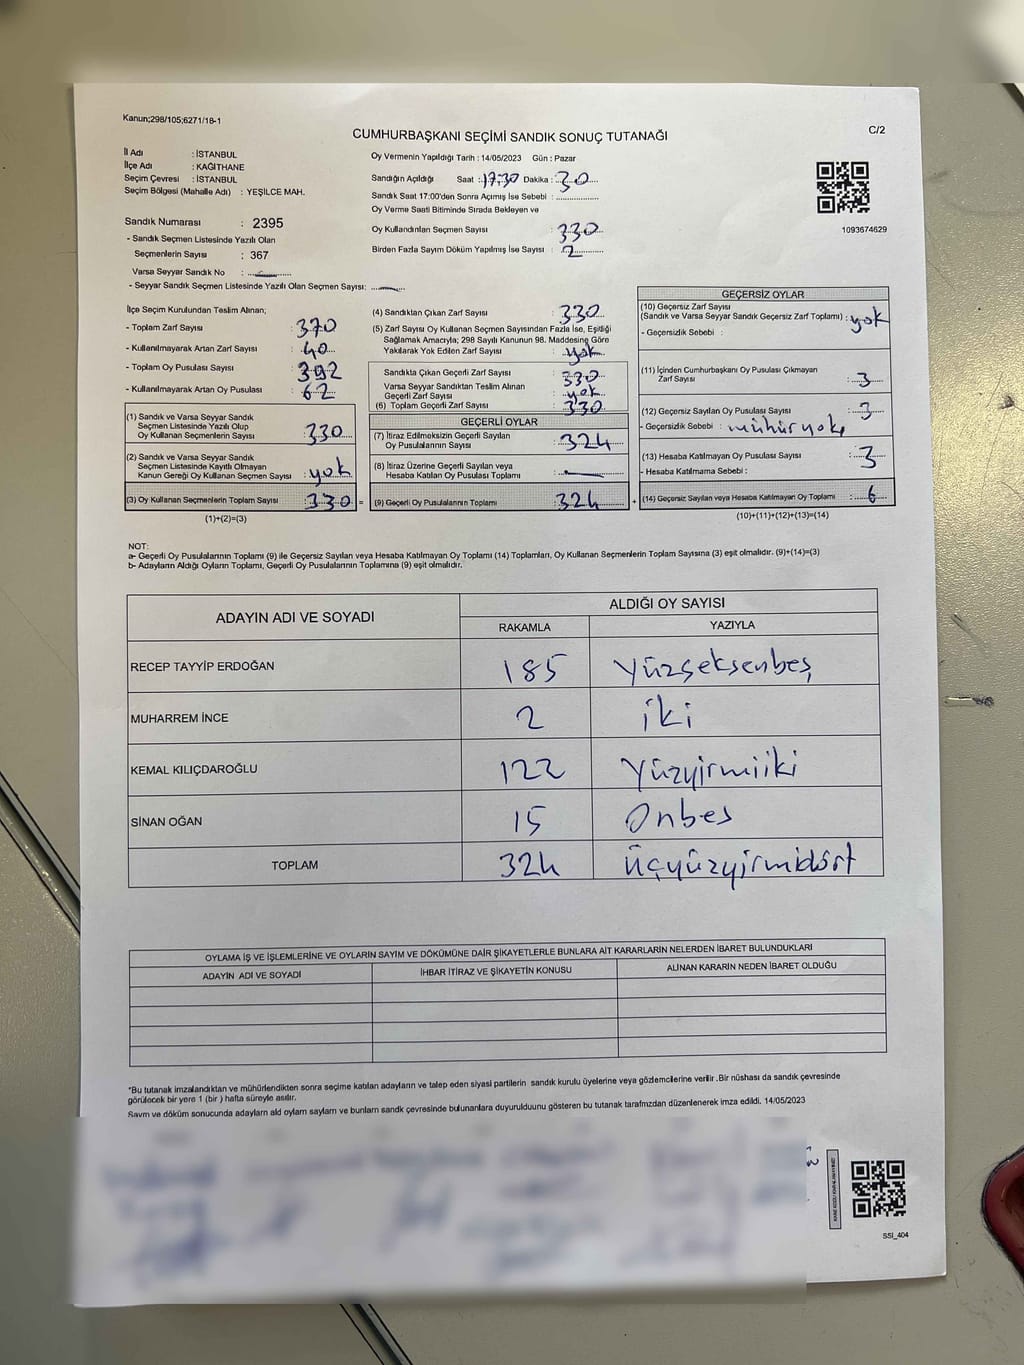 Kanun;298/105;6271/18-1
CUMHURBAŞKANI SEÇİMİ SANDIK SONUÇ TUTANAĞI
C/2
İl Adı : İSTANBUL
İlçe Adı : KAĞITHANE
Seçim Çevresi : İSTANBUL
Seçim Bölgesi (Mahalle Adı) : YEŞİLCE MAH.
Sandık Numarası : 2395
- Sandık Seçmen Listesinde Yazılı Olan
Seçmenlerin Sayısı : 367
Varsa Seyyar Sandık No :
- Seyyar Sandık Seçmen Listesinde Yazılı Olan Seçmen Sayısı:
Oy Vermenin Yapıldığı Tarih : 14/05/2023 Gün : Pazar
Sandığın Açıldığı Saat : 17:30 Dakika : 30
Sandık Saat 17:00'den Sonra Açımış İse Sebebi :
Oy Verme Saati Bitiminde Sırada Bekleyen ve
Oy Kullandırılan Seçmen Sayısı : 330
Birden Fazla Sayım Döküm Yapılmış İse Sayısı : 2
1093674629
İlçe Seçim Kurulundan Teslim Alınan;
- Toplam Zarf Sayısı : 370
- Kullanılmayarak Artan Zarf Sayısı : 40
- Toplam Oy Pusulası Sayısı : 392
- Kullanılmayarak Artan Oy Pusulası : 62
(1) Sandık ve Varsa Seyyar Sandık
Seçmen Listesinde Yazılı Olup
Oy Kullanan Seçmenlerin Sayısı : 330
(2) Sandık ve Varsa Seyyar Sandık
Seçmen Listesinde Kayıtlı Olmayan
Kanun Gereği Oy Kullanan Seçmen Sayısı : yok
(3) Oy Kullanan Seçmenlerin Toplam Sayısı : 330 =
(1)+(2)=(3)
(4) Sandıktan Çıkan Zarf Sayısı : 330
(5) Zarf Sayısı Oy Kullanan Seçmen Sayısından Fazla İse, Eşitliği
Sağlamak Amacıyla; 298 Sayılı Kanunun 98. Maddesine Göre
Yakılarak Yok Edilen Zarf Sayısı : yok
Sandıkta Çıkan Geçerli Zarf Sayısı : 330
Varsa Seyyar Sandıktan Teslim Alınan
Geçerli Zarf Sayısı : yok
(6) Toplam Geçerli Zarf Sayısı : 330
GEÇERLİ OYLAR
(7) İtiraz Edilmeksizin Geçerli Sayılan
Oy Pusulalarının Sayısı : 324
(8) İtiraz Üzerine Geçerli Sayılan veya
Hesaba Katılan Oy Pusulası Toplamı :
(9) Geçerli Oy Pusulalarının Toplamı : 324 +
GEÇERSİZ OYLAR
(10) Geçersiz Zarf Sayısı
(Sandık ve Varsa Seyyar Sandık Geçersiz Zarf Toplamı) : yok
- Geçersizlik Sebebi :
(11) İçinden Cumhurbaşkanı Oy Pusulası Çıkmayan
Zarf Sayısı : 3
(12) Geçersiz Sayılan Oy Pusulası Sayısı : 3
- Geçersizlik Sebebi : mühür yok,
(13) Hesaba Katılmayan Oy Pusulası Sayısı : 3
- Hesaba Katılmama Sebebi :
(14) Geçersiz Sayılan veya Hesaba Katılmayan Oy Toplamı : 6
(10)+(11)+(12)+(13)=(14)
NOT:
a- Geçerli Oy Pusulalarının Toplamı (9) ile Geçersiz Sayılan veya Hesaba Katılmayan Oy Toplamı (14) Toplamları, Oy Kullanan Seçmenlerin Toplam Sayısına (3) eşit olmalıdır. (9)+(14)=(3)
b- Adayların Aldığı Oyların Toplamı, Geçerli Oy Pusulalarının Toplamına (9) eşit olmalıdır.
ADAYIN ADI VE SOYADI
ALDIĞI OY SAYISI
RAKAMLA YAZIYLA
RECEP TAYYİP ERDOĞAN 185 Yüzseksenbeş
MUHARREM İNCE 2 iki
KEMAL KILIÇDAROĞLU 122 Yüzyirmiiki
SİNAN OĞAN 15 Onbes
TOPLAM 324 Üçyüzyirmidört
OYLAMA İŞ VE İŞLEMLERİNE VE OYLARIN SAYIM VE DÖKÜMÜNE DAİR ŞİKAYETLERLE BUNLARA AİT KARARLARIN NELERDEN İBARET BULUNDUKLARI
ADAYIN ADI VE SOYADI İHBAR İTİRAZ VE ŞİKAYETİN KONUSU ALINAN KARARIN NEDEN İBARET OLDUĞU
*Bu tutanak imzalandıktan ve mühürlendikten sonra seçime katılan adayların ve talep eden siyasi partilerin sandık kurulu üyelerine veya gözlemcilerine verilir .Bir nüshası da sandık çevresinde
görülecek bir yere 1 (bir ) hafta süreyle asılır.
Sayım ve döküm sonucunda adayların ald oyların sayları ve bunların sandk çevresinde bulunanlara duyurulduunu gösteren bu tutanak tarafmzdan düzenlenerek imza edildi. 14/05/2023
SSI_404